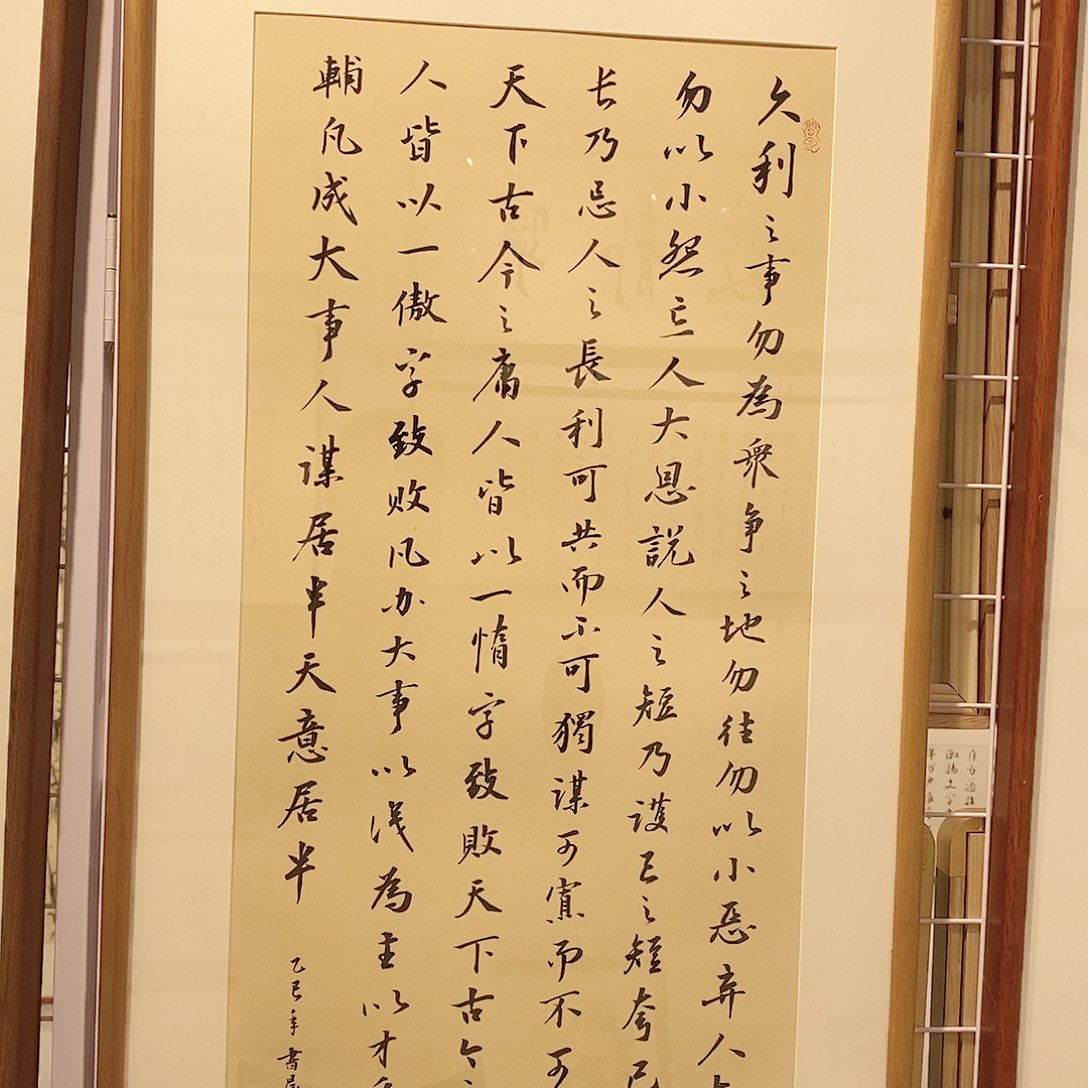 久利之事勿為衆争之地勿往勿以小惡弃人
勿以小怨忘人大恩説人之短乃護己之短夸己
长乃忌人之長利可共而不可獨謀可寡而不可
天下古今之庸人皆以一惰字致敗天下古今
人皆以一傲字致败凡办大事以识為主以才
輔凡成大事人謀居半天意居半
乙巳年書